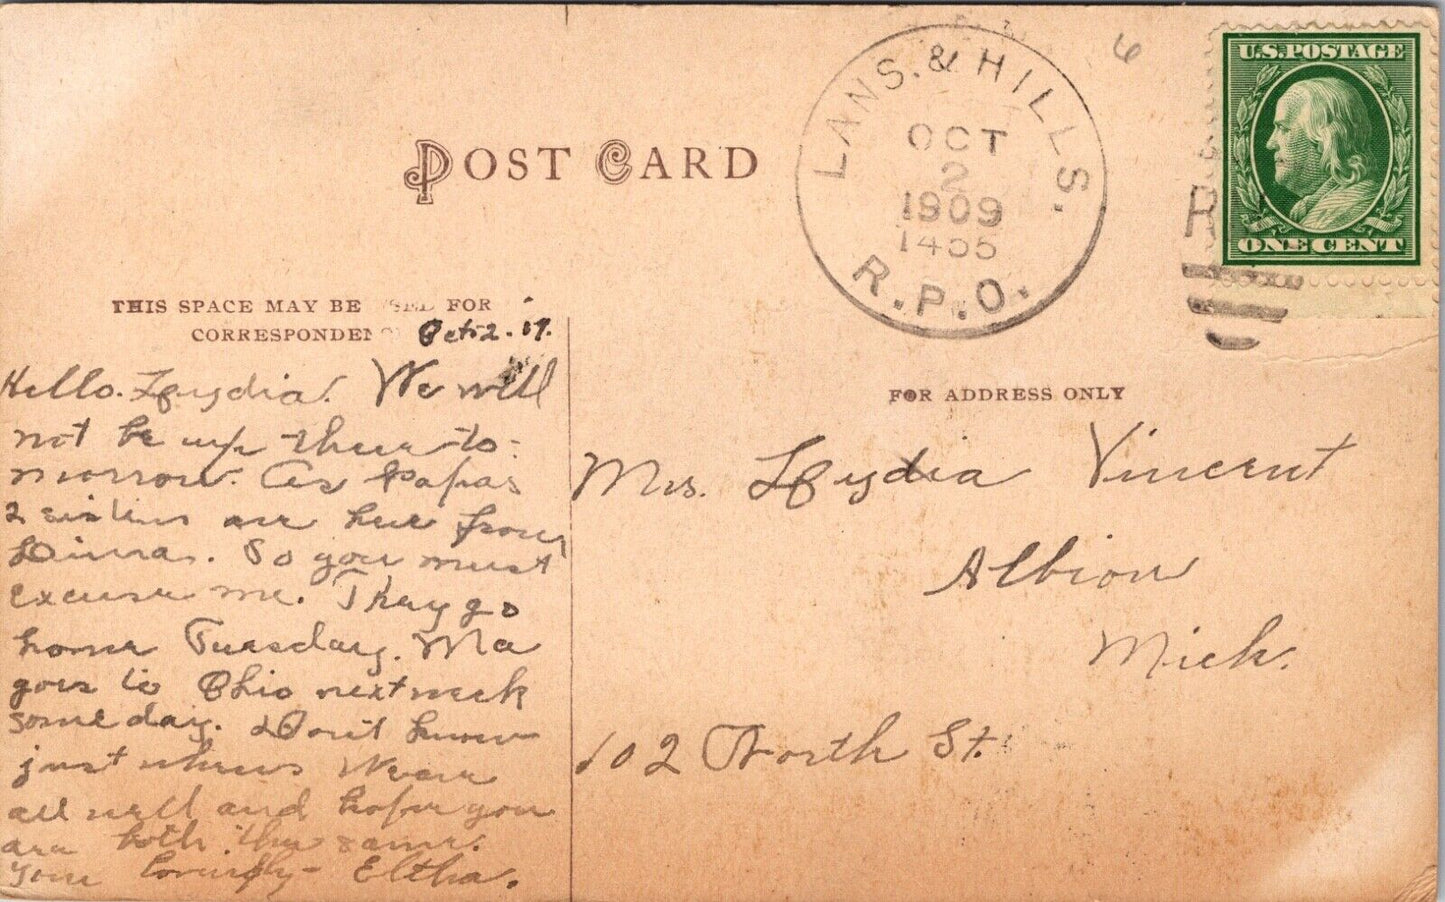 POST CARD
THIS SPACE MAY BE USED FOR
CORRESPONDENC
Oct-2-
Hello. Lydia. We will
not be up there to-
morrow. As Papas
2 sisters are here from
So you must
excuse me. They go
home Tuesday. Ma
goes to Ohio next week
some day. Don't know
just when We are
all well and hope you
are both the same.
Your Eltha.
LANS. & HILLS.
OCT
2
1909
1455
R.P.O.
6
R
U.S.POSTAGE
ONE CENT
FOR ADDRESS ONLY
Mrs. Lydia Vincent
Albion
Mich.
102 North St.